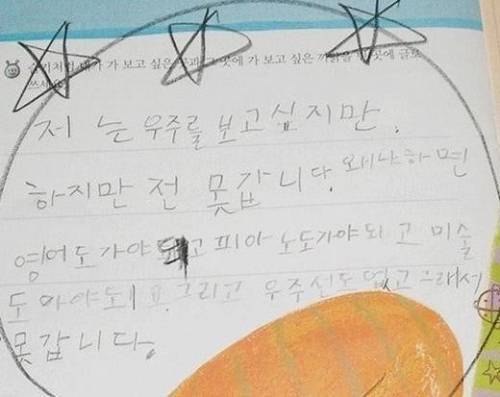 가 보고 싶은 곳에 가 보고 싶은 까닭을 곳에 글로
쓰세요
저 는 우주를 보고싶지만.
하지만 전 못갑니다. 왜냐하면
영어도가야 되고 피아 노도가야되 고 미술
도 가야되요. 그리고 우주선도 없고 그래서
못갑니다.